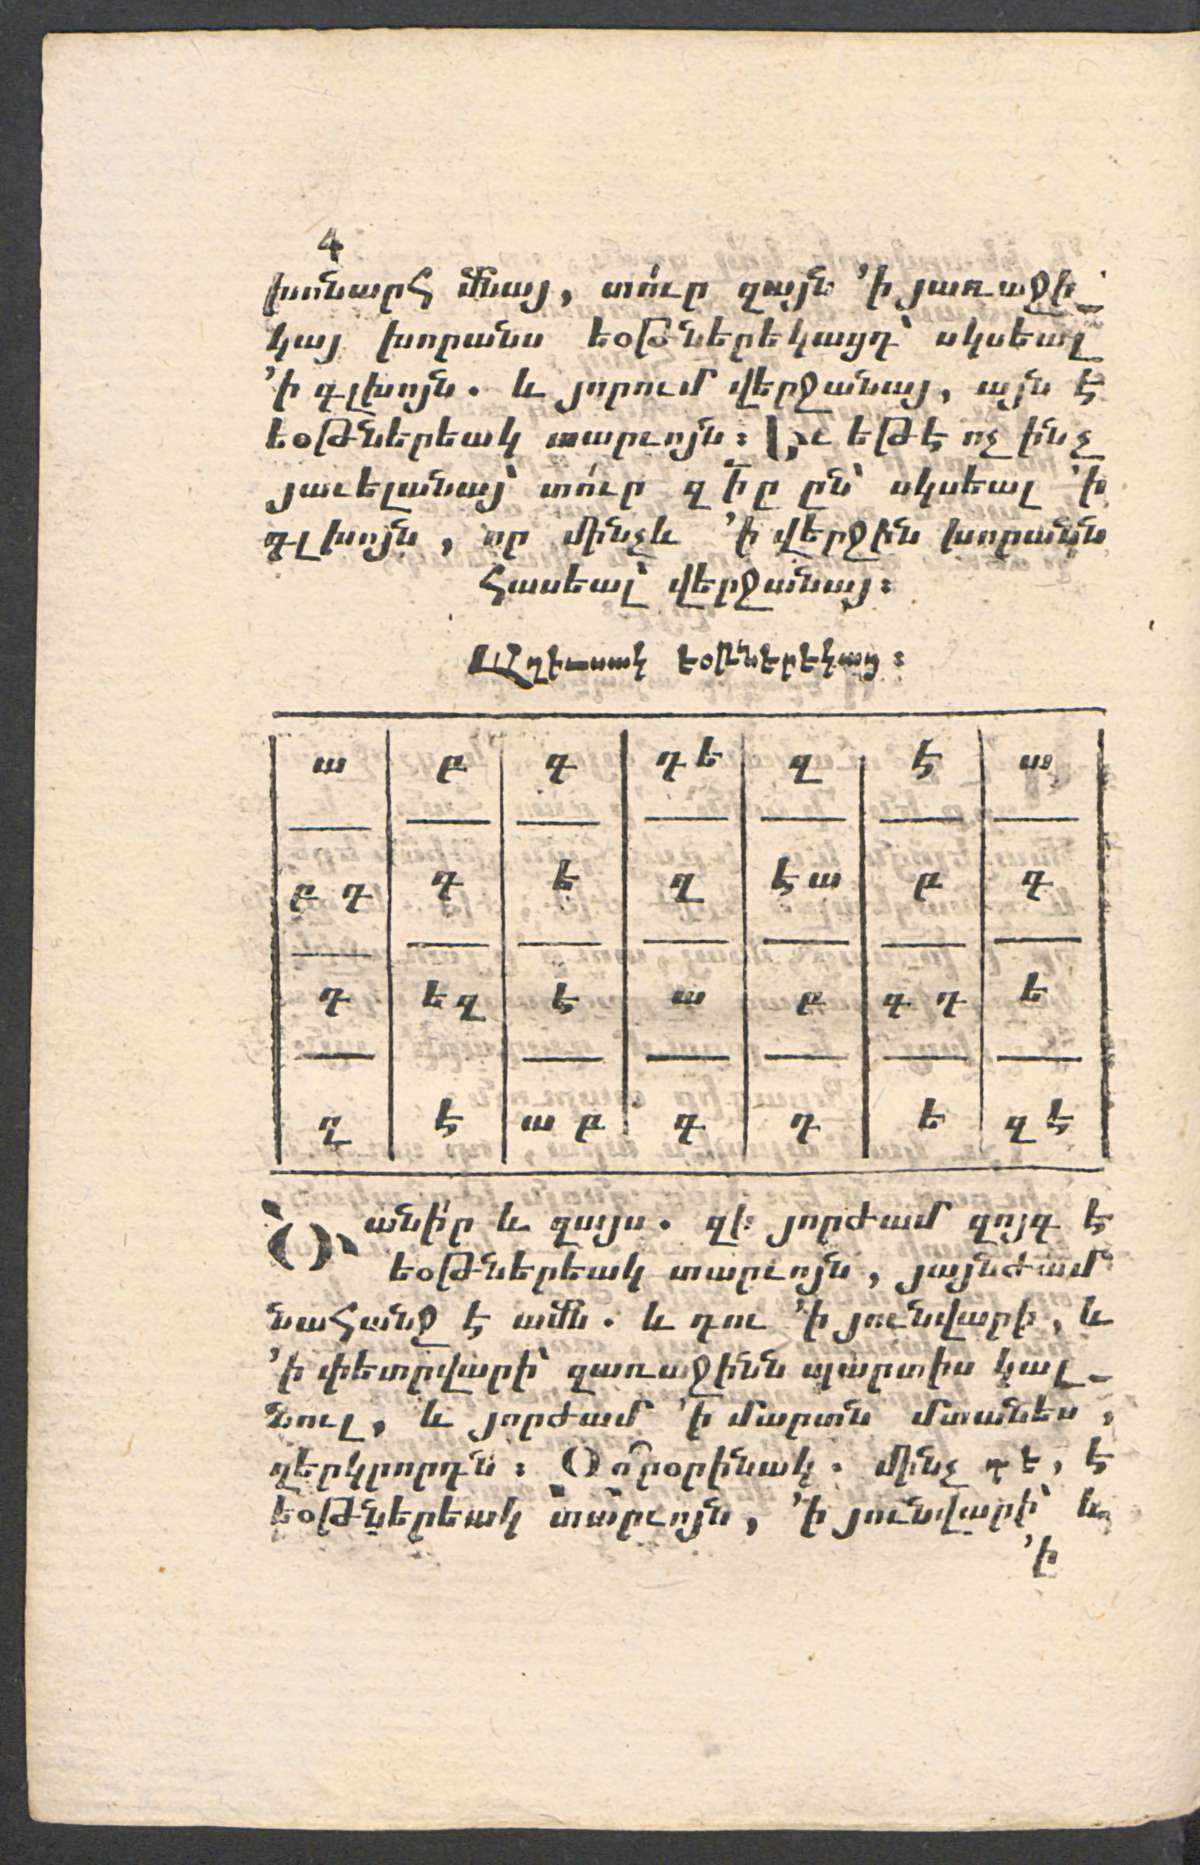 4
խոնարհ մնայ, տո՛ւր զայն ՚ի յառաջի֊
կայ խորանս եօթներեկացդ՝ սկսեալ
՚ի գլխոյն. և յորում վերջանայ, այն է
եօթներեակ տարւոյն։ Իւ եթէ ոչ ինչ
յաւելանայ՝ տո՛ւր զ ի՞ ը ըն՝ սկսեալ ՚ի
գլխոյն, որ մինչև ՚ի վերջին խորանն
հասեալ՝ վերջանայ։
Աղիւսակ եօթներեկաց։
ա բ գ դ ե զ է ա
բ գ դ ե զ է ա բ գ
դ ե զ է ա բ գ դ ե
զ է ա բ գ դ ե զ է
Ծանի՛ր և զայս. զի յորժամ զոյգ է
եօթներեակ տարւոյն, յայնժամ
նահանջ է ամն. և դու ՚ի յունվարի, և
՚ի փետրվարի՝ զառաջինն պարտիս կալ֊
նուլ, և յորժամ ՚ի մարտն մտանես,
զերկրորդն։ Օրօրինակ. մինչ դ ե, է
եօթներեակ տարւոյն, ՚ի յունվարի՝ և
՚ի